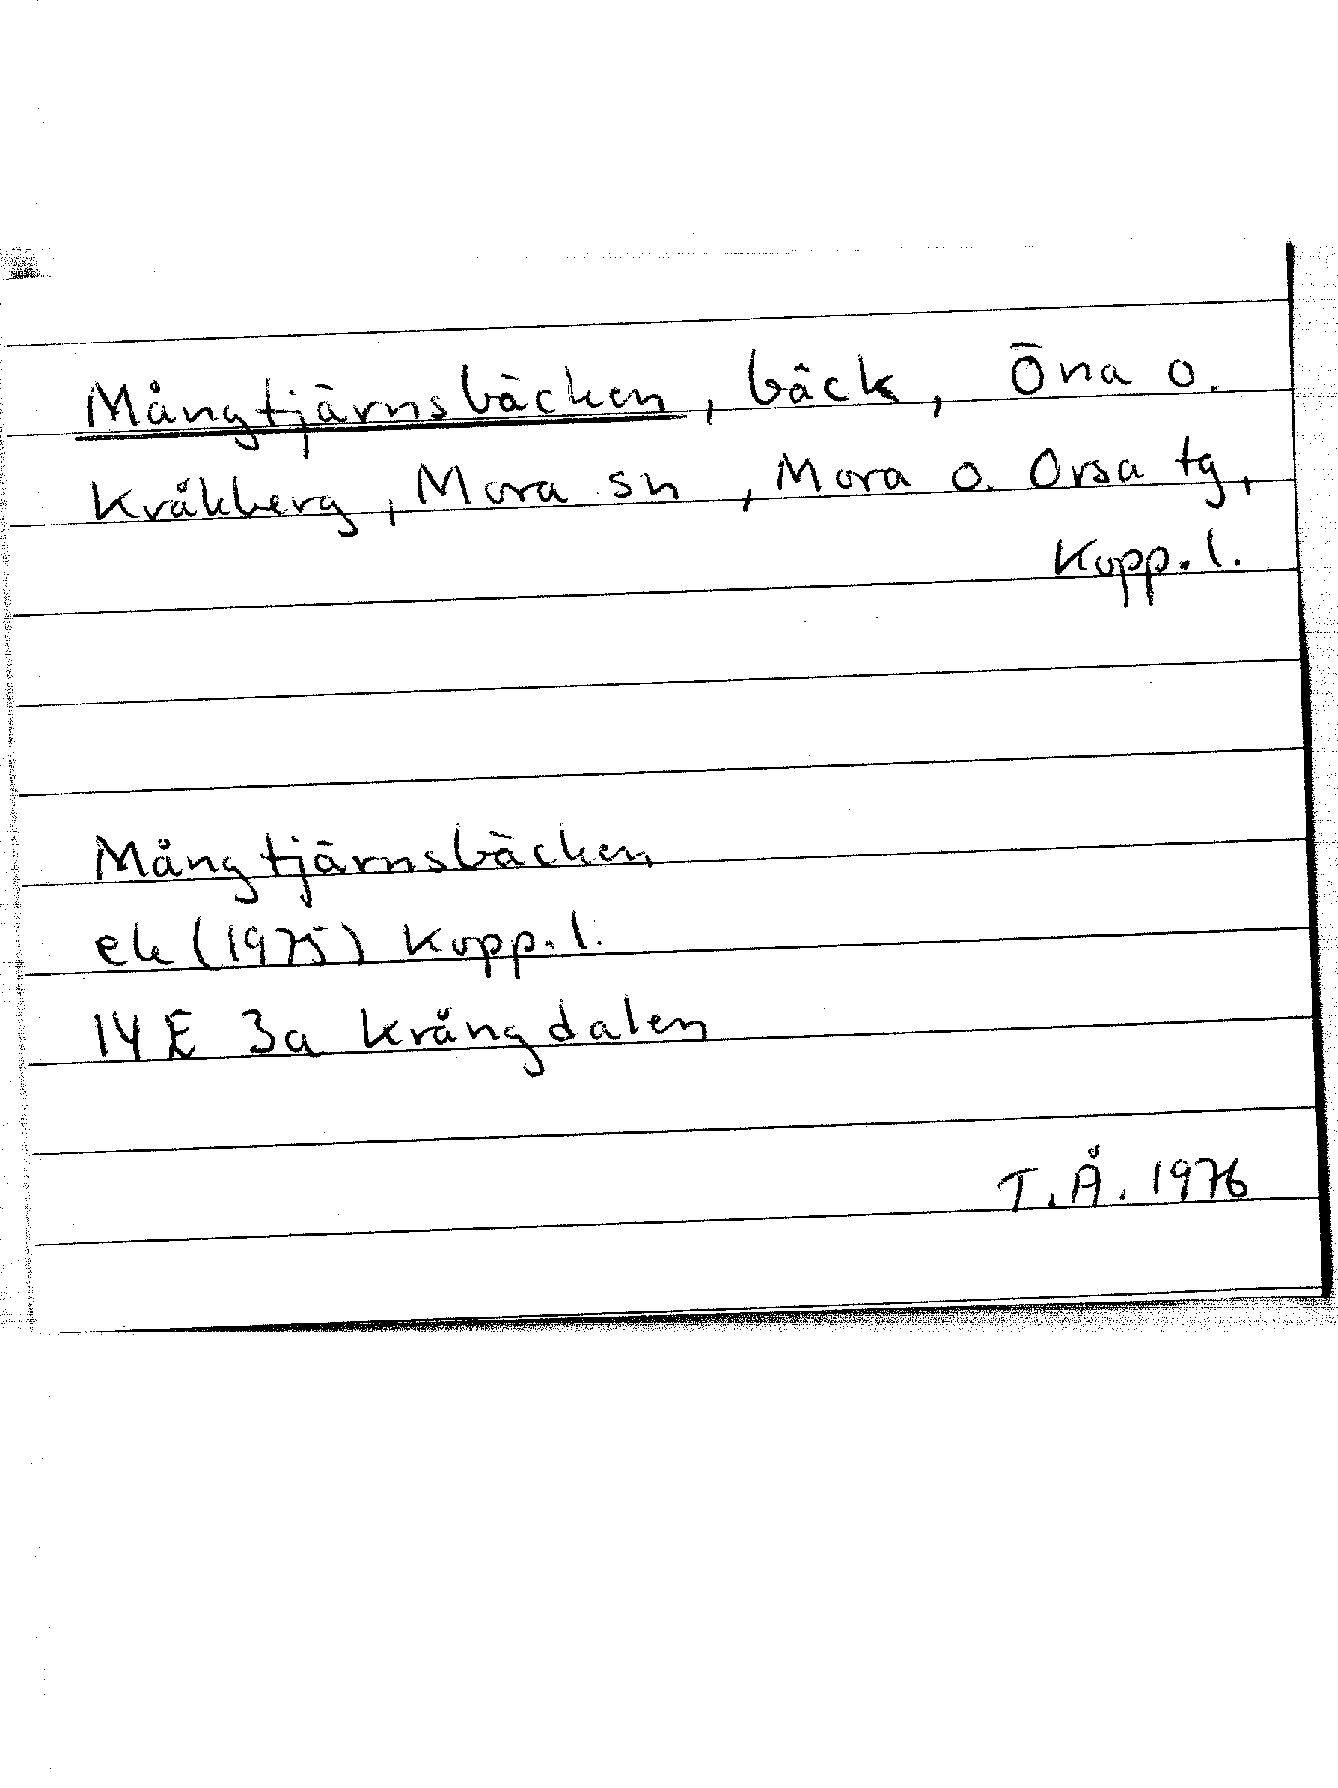 Mångtjärnsbäcken, bäck, Öna o.
Kråkberg, Mora sn, Mora o. Orsa tg,
Kopp. l.
Mångtjärnsbäcken
ek (1975) Kopp. l.
14 E 3a Krångdalen
T. Å. 1976